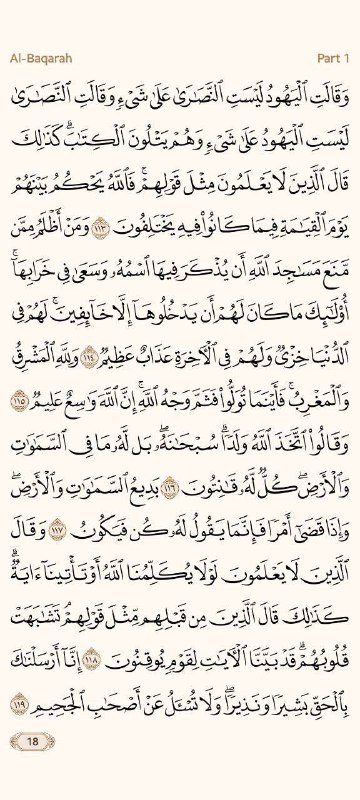 Al-Baqarah
Part 1
وَقَالَتِ ٱلْيَهُودُ لَيْسَتِ ٱلنَّصَٰرَىٰ عَلَىٰ شَىْءٍ وَقَالَتِ ٱلنَّصَٰرَىٰ
لَيْسَتِ ٱلْيَهُودُ عَلَىٰ شَىْءٍ وَهُمْ يَتْلُونَ ٱلْكِتَٰبَ ۗ كَذَٰلِكَ
قَالَ ٱلَّذِينَ لَا يَعْلَمُونَ مِثْلَ قَوْلِهِمْ ۚ فَٱللَّهُ يَحْكُمُ بَيْنَهُمْ
يَوْمَ ٱلْقِيَٰمَةِ فِيمَا كَانُوا۟ فِيهِ يَخْتَلِفُونَ ١١٣ وَمَنْ أَظْلَمُ مِمَّن
مَّنَعَ مَسَٰجِدَ ٱللَّهِ أَن يُذْكَرَ فِيهَا ٱسْمُهُۥ وَسَعَىٰ فِى خَرَابِهَآ ۚ
أُو۟لَٰٓئِكَ مَا كَانَ لَهُمْ أَن يَدْخُلُوهَآ إِلَّا خَآئِفِينَ ۚ لَهُمْ فِى
ٱلدُّنْيَا خِزْىٌ وَلَهُمْ فِى ٱلْءَاخِرَةِ عَذَابٌ عَظِيمٌ ١١٤ وَلِلَّهِ ٱلْمَشْرِقُ
وَٱلْمَغْرِبُ ۚ فَأَيْنَمَا تُوَلُّوا۟ فَثَمَّ وَجْهُ ٱللَّهِ ۚ إِنَّ ٱللَّهَ وَٰسِعٌ عَلِيمٌ ١١٥
وَقَالُوا۟ ٱتَّخَذَ ٱللَّهُ وَلَدًا ۗ سُبْحَٰنَهُۥ ۖ بَل لَّهُۥ مَا فِى ٱلسَّمَٰوَٰتِ
وَٱلْأَرْضِ ۖ كُلٌّ لَّهُۥ قَٰنِتُونَ ١١٦ بَدِيعُ ٱلسَّمَٰوَٰتِ وَٱلْأَرْضِ ۖ
وَإِذَا قَضَىٰٓ أَمْرًا فَإِنَّمَا يَقُولُ لَهُۥ كُن فَيَكُونُ ١١٧ وَقَالَ
ٱلَّذِينَ لَا يَعْلَمُونَ لَوْلَا يُكَلِّمُنَا ٱللَّهُ أَوْ تَأْتِينَآ ءَايَةٌ ۗ
كَذَٰلِكَ قَالَ ٱلَّذِينَ مِن قَبْلِهِم مِّثْلَ قَوْلِهِمْ ۘ تَشَٰبَهَتْ
قُلُوبُهُمْ ۗ قَدْ بَيَّنَّا ٱلْءَايَٰتِ لِقَوْمٍ يُوقِنُونَ ١١٨ إِنَّآ أَرْسَلْنَٰكَ
بِٱلْحَقِّ بَشِيرًا وَنَذِيرًا ۖ وَلَا تُسْـَٔلُ عَنْ أَصْحَٰبِ ٱلْجَحِيمِ ١١٩
18